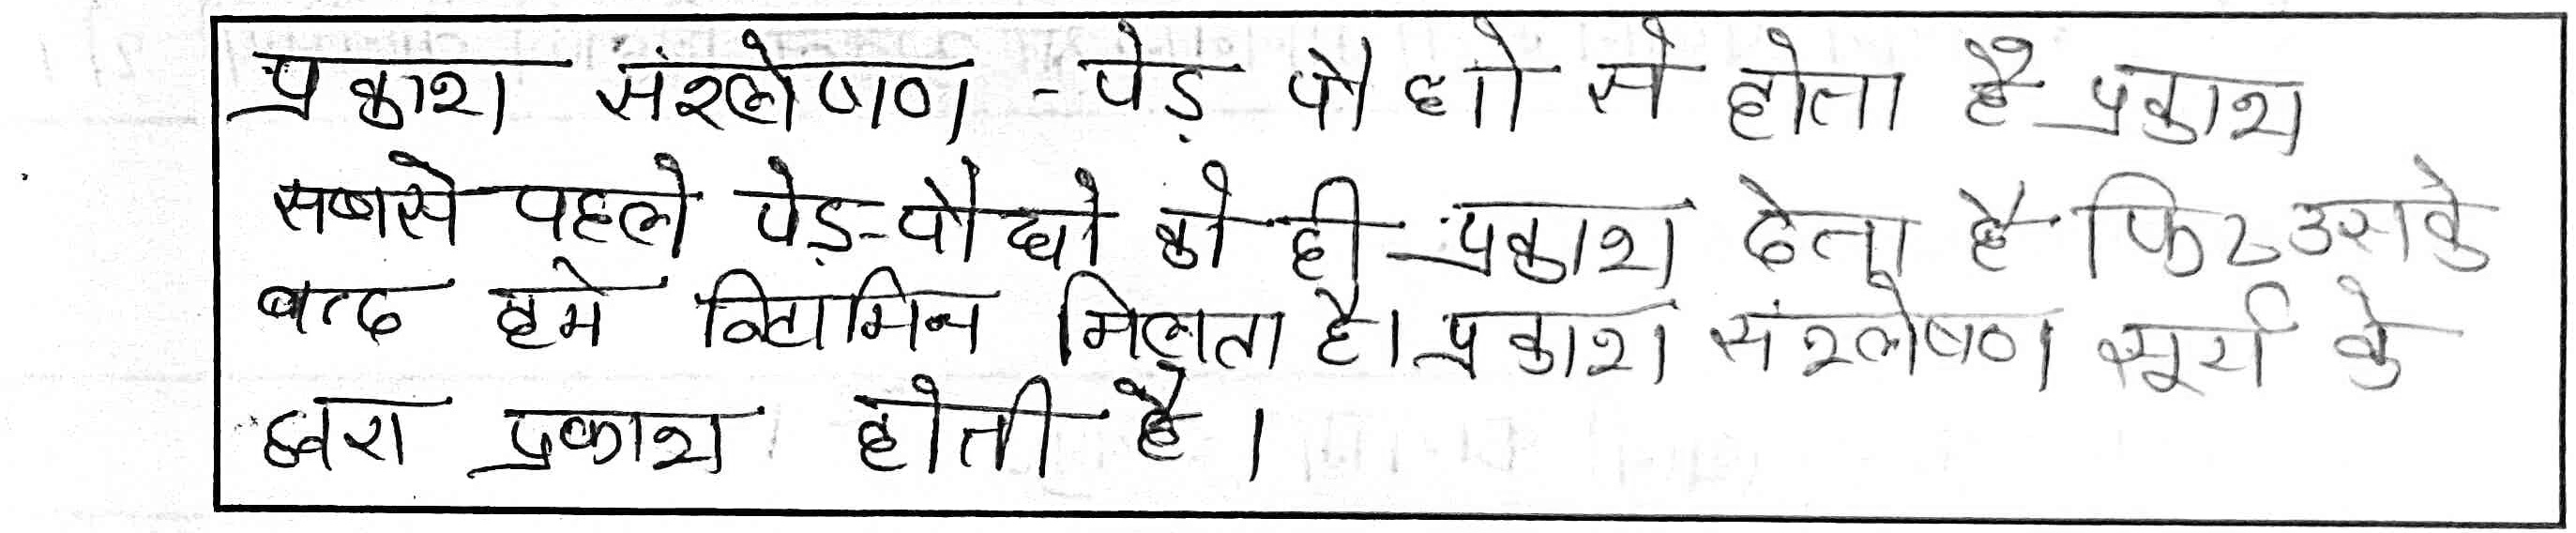 प्रकाश संश्लेषण - पेड़ पौधो से होता है प्रकाश
सबसे पहले पेड़-पौधो को ही प्रकाश देता है फिर उसके
बाद हमे विटामिन मिलता है। प्रकाश संश्लेषण सूर्य के
द्वारा प्रकाश होती है।